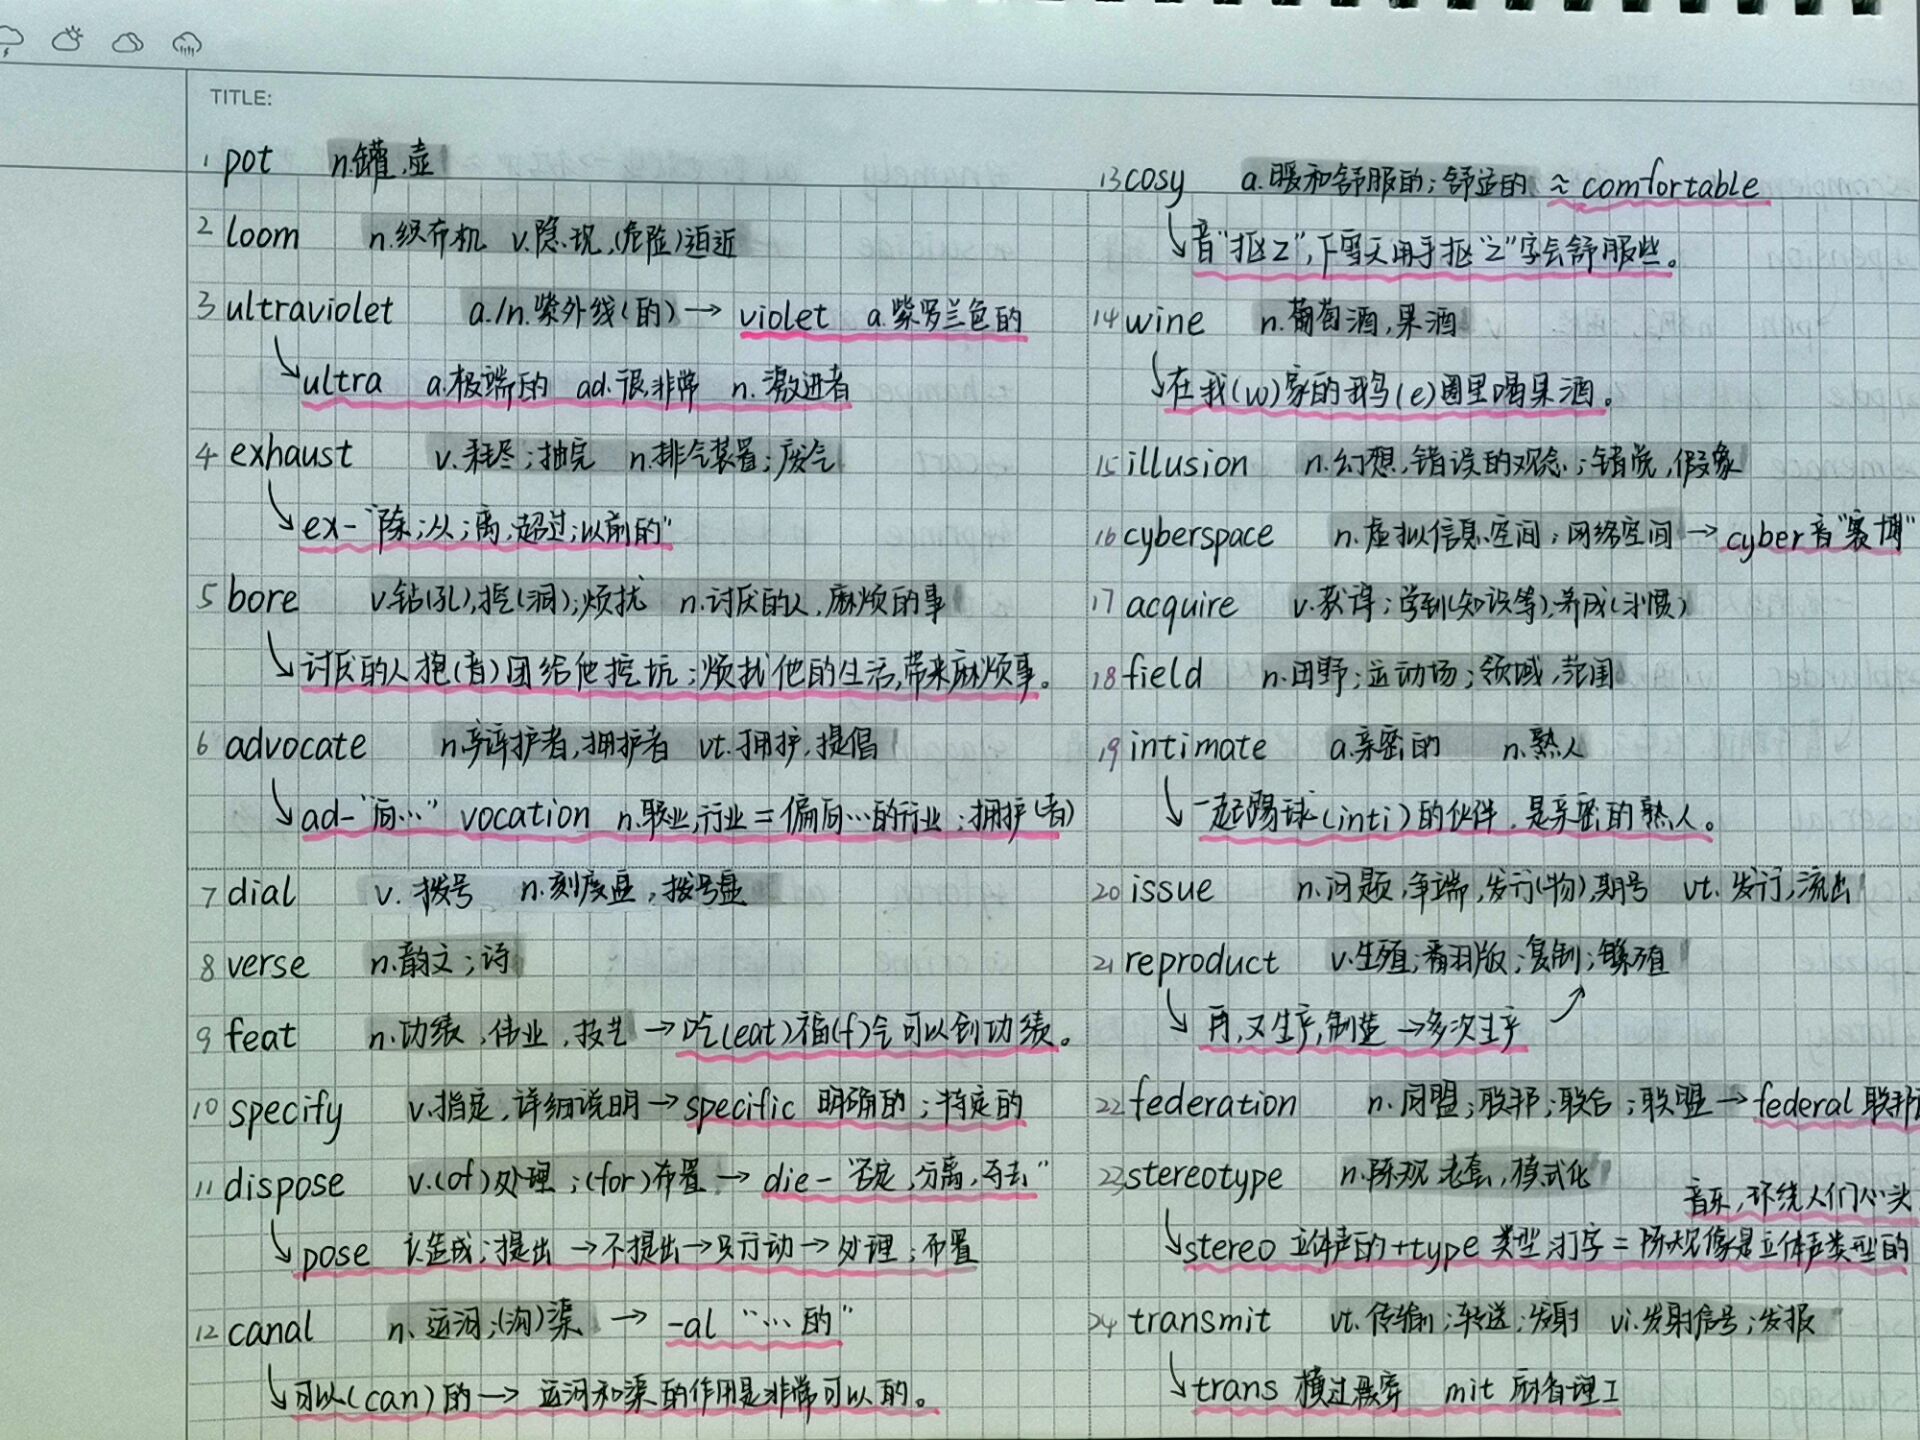 TITLE:
1 pot n.罐,壶
2 loom n.织布机 v.隐现,(危险)迫近
3 ultraviolet a./n.紫外线(的)→violet a.紫罗兰色的
ultra a.极端的 ad.很,非常 n.激进者
4 exhaust v.耗尽;抽完 n.排气装置;废气
ex-"除;从;离;超过;以前的"
5 bore v.钻(孔),挖(洞);烦扰 n.讨厌的人,麻烦的事
讨厌的人抱(者)团给他挖坑;烦扰他的生活,带来麻烦事。
6 advocate n.辩护者,拥护者 vt.拥护,提倡
ad-"向…" vocation n.职业,行业=偏向…的行业;拥护(者)
7 dial v.拨号 n.刻度盘,拨号盘
8 verse n.韵文;诗
9 feat n.功绩,伟业,技艺→吃(eat)福(f)气可以创功绩。
10 specify v.指定,详细说明→specific 明确的;特定的
11 dispose v.(of)处理;(for)布置→die-"否定,分离,夺去"
pose v.造成;提出→不提出→只行动→处理;布置
12 canal n.运河;(沟)渠→-al "…的"
可以(can)的→运河和渠的作用是非常可以的。
13 cosy a.暖和舒服的;舒适的≈comfortable
音"抠Z",下雪天用手抠"Z"字会舒服些。
14 wine n.葡萄酒,果酒
在我(w)家的鹅(e)圈里喝果酒。
15 illusion n.幻想,错误的观念;错觉,假象
16 cyberspace n.虚拟信息空间;网络空间→cyber音"赛博"
17 acquire v.获得;学到(知识等);养成(习惯)
18 field n.田野;运动场;领域,范围
19 intimate a.亲密的 n.熟人
一起踢球(inti)的伙伴,是亲密的熟人。
20 issue n.问题,争端,发行(物),期号 vt.发行,流出
21 reproduct v.生殖;翻版;复制;繁殖
再,又生产,制造→多次生产
22 federation n.同盟;联邦;联合;联盟→federal 联邦
23 stereotype n.陈规老套,模式化
音乐,环绕人们心头
stereo 立体声的+type 类型;打字=陈规像是立体声类型的
24 transmit vt.传输;转送;发射 vi.发射信号;发报
trans 横过 mit 麻省理工